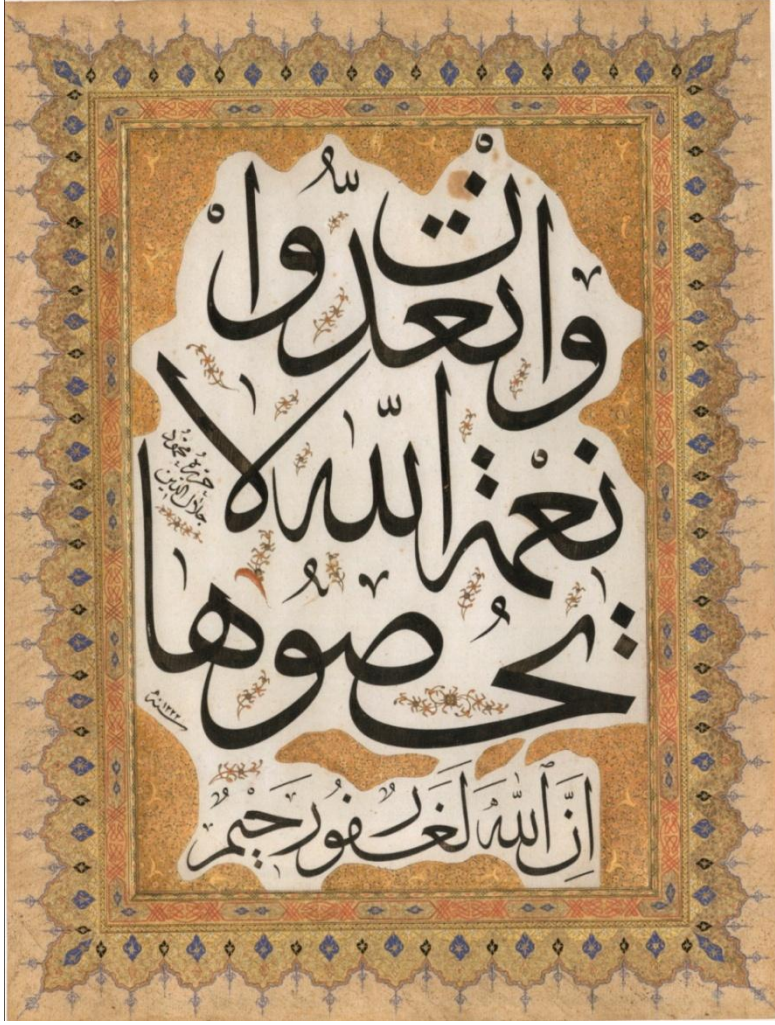 وانْ تعُدُّواْ
نعْمة الله لا
تحصُوها
حرره محمود
جلال الدين
سنه ١٢٢٢
اِنَّ اللّٰهَ لَغَفُورٌ رَحيمٌ